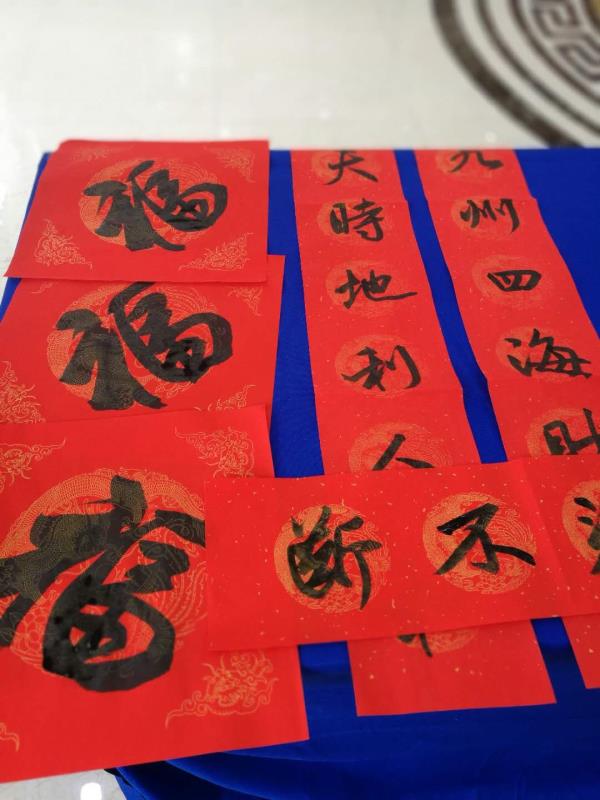 福
福
天時地利人
九州四海財
断不